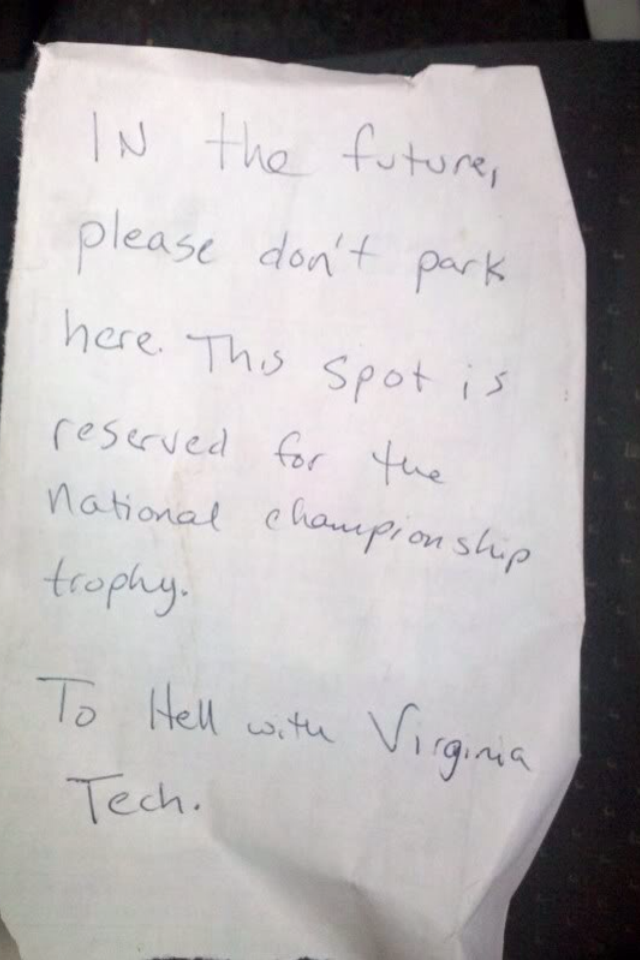 IN the future,
please don't park
here. This spot is
reserved for the
national championship
trophy.
To Hell with Virginia
Tech.